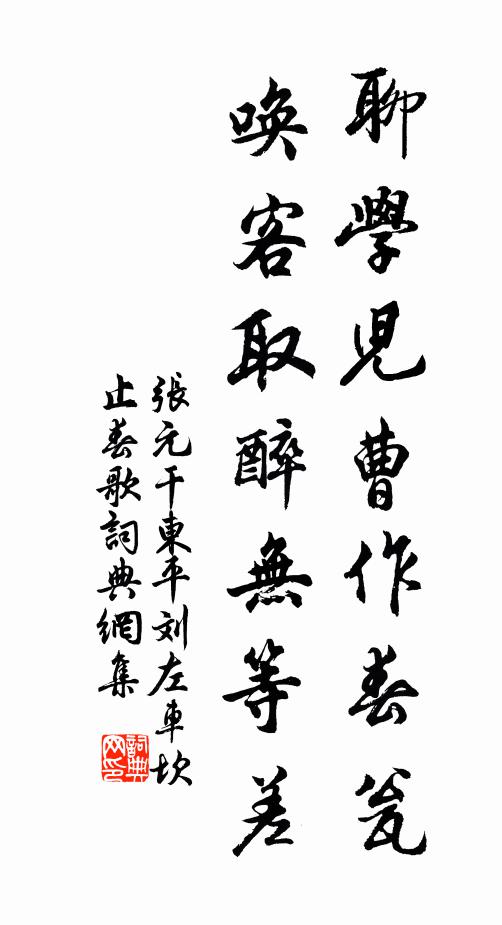 聊學児曹作春瓮
唤客取醉無等差
張元干東平刘左車坎
止春歌詞典網集
詞典
网印